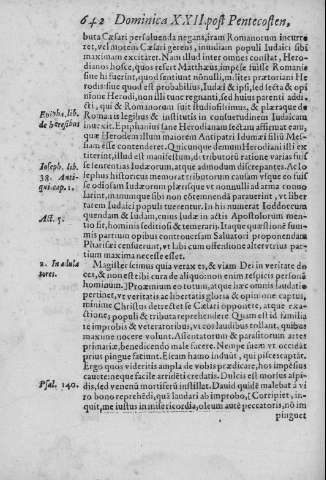 642 Dominica XXII. post Pentecosten,
buta Cæsari persoluenda negans, iram Romanorum incurre
ret, vel morem Cæsari gerens, inuidiam populi Iudaici sibi
maximam excitaret. Nam illud inter omnes constat, Hero-
dianos hosce, quos refert Matthæus, impése fuisse Romanis
siue hi fuerint, quod sentiunt nónulli, milites prætoriani He
rodis: siue quod est probabilius, Iudæi & ipsi, sed secta & opi
nione Herodi, non illi tunc regnanti, sed huius parenti addi
cti, qui & Romanorum fuit studiosissimus, & pleraque de
Romanis legibus & institutis in consuetudinem Iudaicam
inuexit. Epiphanius sane Herodianam sectam affirmat eam,
quæ Herodem illum maiorem Antipatri Idumæi filiú Mes-
siam esse censeret. Quicunque demum Herodiani isti ex
titerint, illud est manifestum, de tributorú ratione varias fuis
se sententias Iudæorum, atque admodum discrepantes. Ac Io
sephus historicus memorat tributorum causam vsque eo fuis
se odiosam Iudæorum plærisque vt nonnulli ad arma conuo
larint, manumque sibi non cótemnendá parauerint, vt liber
tatem Iudæis populi tuerentur. In his numerat Ioddoceum
quendam & Iudam, cuius Iudæ in actis Apostolorum men-
tio fit, hominis seditiosi & temerarij. Itaque quæstioné sum-
mis partium opibus controuersam Saluatori proponendam
Pharisæi censuerunt, vt sibi cum offensione alterutrius par-
tium maxima necesse esset.
Magister scimus quia verax es, & viam Dei in veritate do
ces, & non est tibi cura de aliquo: non enim respicis personá
hominum.] Proœmium eo totum, atque hæc omnis laudatio
pertinet, vt veritatis ac libertatis gloria & opinione captus,
minime Christus detrectet se Cæsari opponere, atque exa-
ctione; populi & tributa reprehendere. Quam est id familia
re improbis & veteratoribus, vt eos laudibus tollant, quibus
maxime nocere volunt. Assentatorum & parasitorum artes
primariæ, benedicendo male facere. Nempe suem vt occidát
prius pingue fatimnt. Escam hamo induút, qui pisces captát.
Ergo quos videritis ampla de vobis prædicare, hos impésius
cauete: neque facile arridéti credatis. Dulcis est morsus aspi-
dis, sed venenú mortiferú instillat. Dauid quidé malebat á vi
ro bono reprehédi, quá laudari ab improbo, [Corripiet, in-
quit, me iustus in misericordia, oleum auté peccatoris, nó im
pinguet
Epipha. lib.
de heresibus
Ioseph. lib.
18. Anti-
qui. cap. 1.
Act. 5.
2. In adula
tores.
Psal. 140.